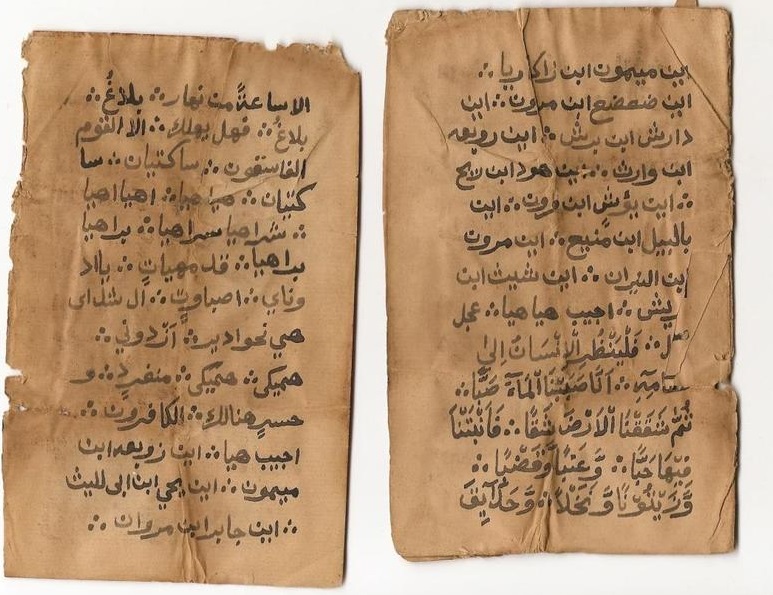 ابن ميمون ابن زاكاريا ∴
ابن صعصع ابن مرون ∴ ابن
دارش ابن برش ∴ ابن رويعه
ابن وارث ∴ ابن هود ابن ريح
∴ ابن يؤش ابن مرون ∴ ابن
بالبيل ابن منبيع ∴ ابن مرون
ابن النيران ∴ ابن شيث ابن
ريش ∴ اجيب هيا هيا ∴ عجل
فَلْيَنْظُرِ الْاِنْسَانُ اِلىٰ
طعَامِهِ ∴ اَنَّا صَبَبْنَا الْمَآءَ صَبًّا ∴
ثُمَّ شَقَقْنَا الْاَرْضَ شَقًّا ∴ فَاَنْبَتْنَا
فِيْهَا حَبًّا ∴ وَّعِنَبًا وَّقَضْبًا ∴
وَّزَيْتُوْنًا وَّنَخْلًا ∴ وَّحَدَآئِقَ
الا ساعةً من نهار ∴ بلاغُ ∴
بلاغُ ∴ فهل يهلك ∴ الا القوم
الفاسقون ∴ ساكتيان ∴ سا
كتيان ∴ هيا هيا ∴ اهيا اهيا
∴ شراهيا سراهيا ∴ براهيا
براهيا ∴ قد مهيات ∴ يااد
وناي ∴ اصباوت ∴ ال شداى
هي نحوا دير ∴ ازدوني ∴
هميكي ∴ هميكي ∴ منفردٍ ∴ و
حسر هنالك ∴ الكافرون ∴
اجيب هيا ∴ ابن زوبعه ابن
ميمون ∴ ابن يحي ابن ابى لليث
∴ ابن جابر ابن مروان ∴